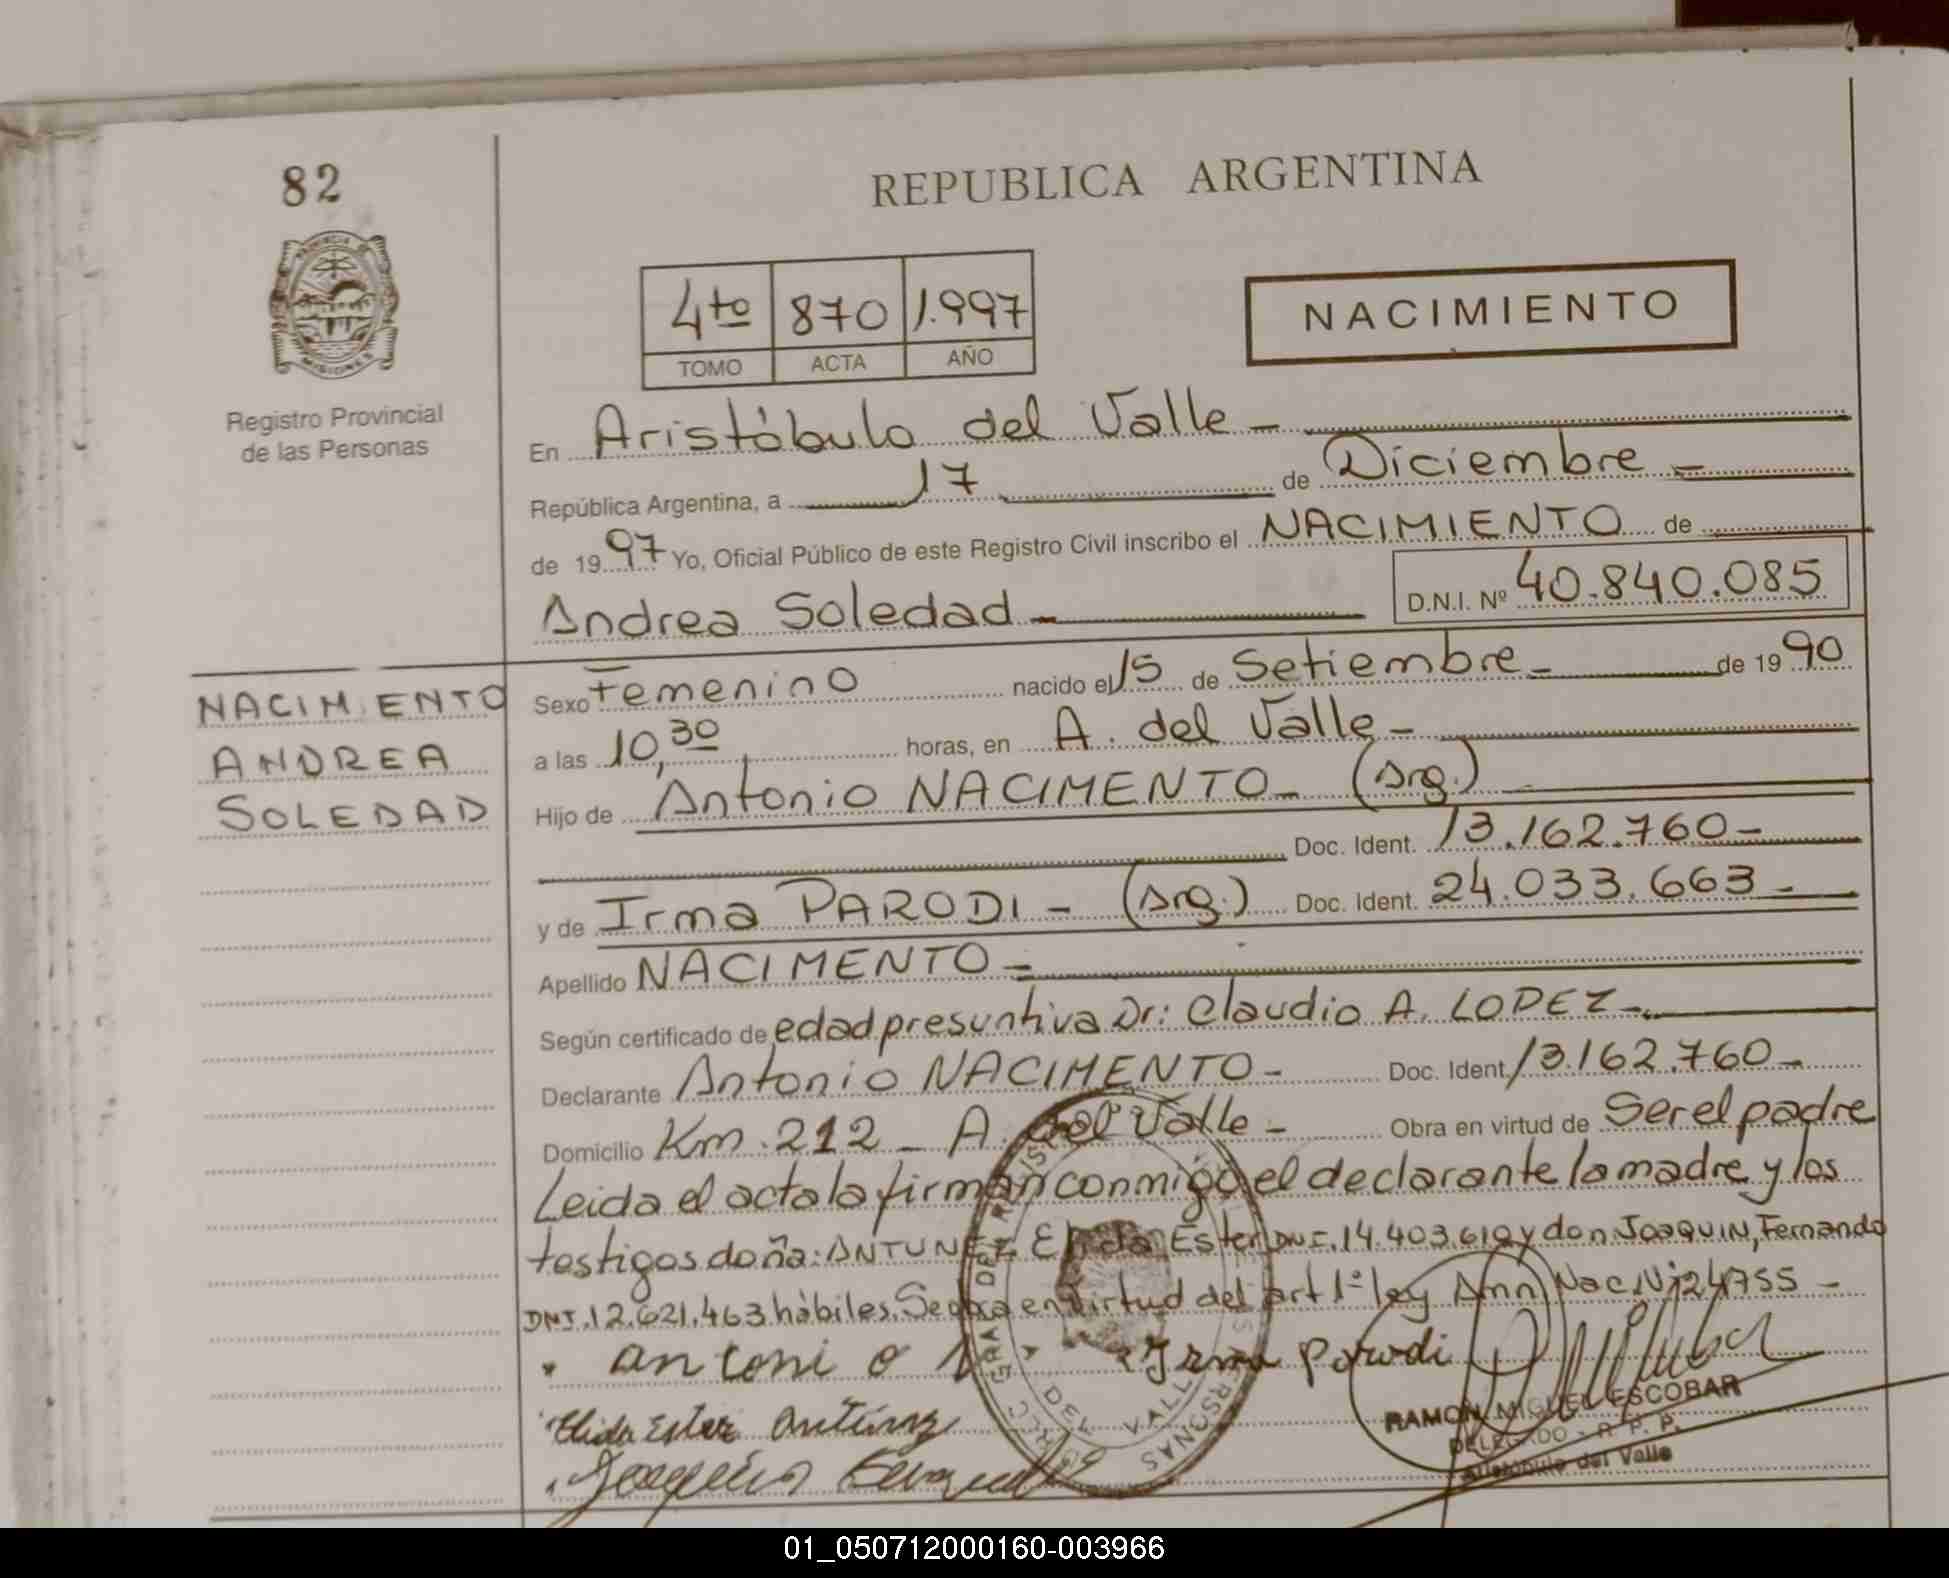 82
REPUBLICA ARGENTINA
PROVINCIA DE
MISIONES
Registro Provincial
de las Personas
4to 870 1.997
TOMO ACTA AÑO
NACIMIENTO
En Aristóbulo del Valle -
República Argentina, a 17 de Diciembre -
de 1997 Yo, Oficial Público de este Registro Civil inscribo el NACIMIENTO de
Andrea Soledad - D.N.I. Nº 40.840.085
NACIMIENTO
ANDREA
SOLEDAD
Sexo Femenino nacido el 15 de Setiembre - de 1990
a las 10,30 horas, en A. del Valle -
Hijo de Antonio NACIMENTO - (Arg.)
Doc. Ident. 13.162.760 -
y de Irma PARODI - (Arg.) Doc. Ident. 24.033.663 -
Apellido NACIMENTO -
Según certificado de edad presuntiva Dr: Claudio A. LOPEZ -
Declarante Antonio NACIMENTO - Doc. Ident. 13.162.760 -
Domicilio Km. 212 - A. del Valle - Obra en virtud de Ser el padre
Leida el acta la firman conmigo el declarante la madre y los
testigos doña: ANTUNEZ Elida Ester DNI. 14.403.619 y don JOAQUIN, Fernando
DNI. 12.621.463 hábiles. Se obra en virtud del art 1º ley Amn Nac Nº 24755 -
antonio Irma Parodi
Elida Ester Antúnez
RAMON MIGUEL ESCOBAR
DELEGADO - R. P. P.
Aristóbulo del Valle
01_050712000160-003966